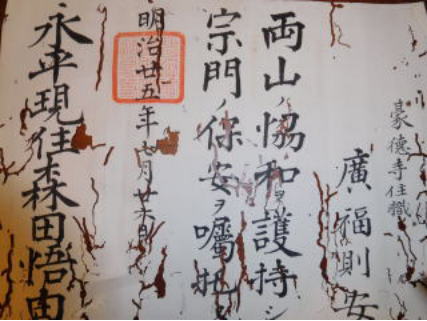 豪德寺住職
廣福則安
両山ノ恊和ヲ護持シ
宗門ノ保安ヲ囑托
明治廿五年七月廿六日
永平現住森田悟由